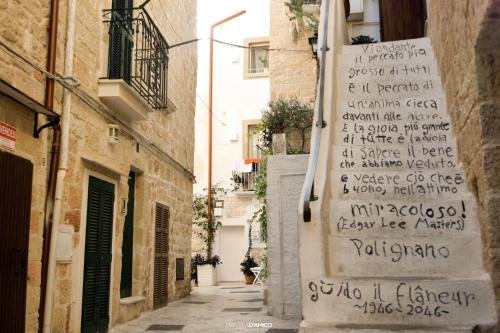 Viandante
il peccato più
grosso di tutti
è il peccato di
un'anima cieca
davanti alle altre.
E la gioia più grande
di tutte è la gioia
di sapere il bene
che abbiamo veduto,
e vedere ciò che è
buono, nell'attimo
miracoloso!
(Edgar Lee Masters)
Polignano
guido il flâneur
~1946~2046~
VENDESI
D'AMICO